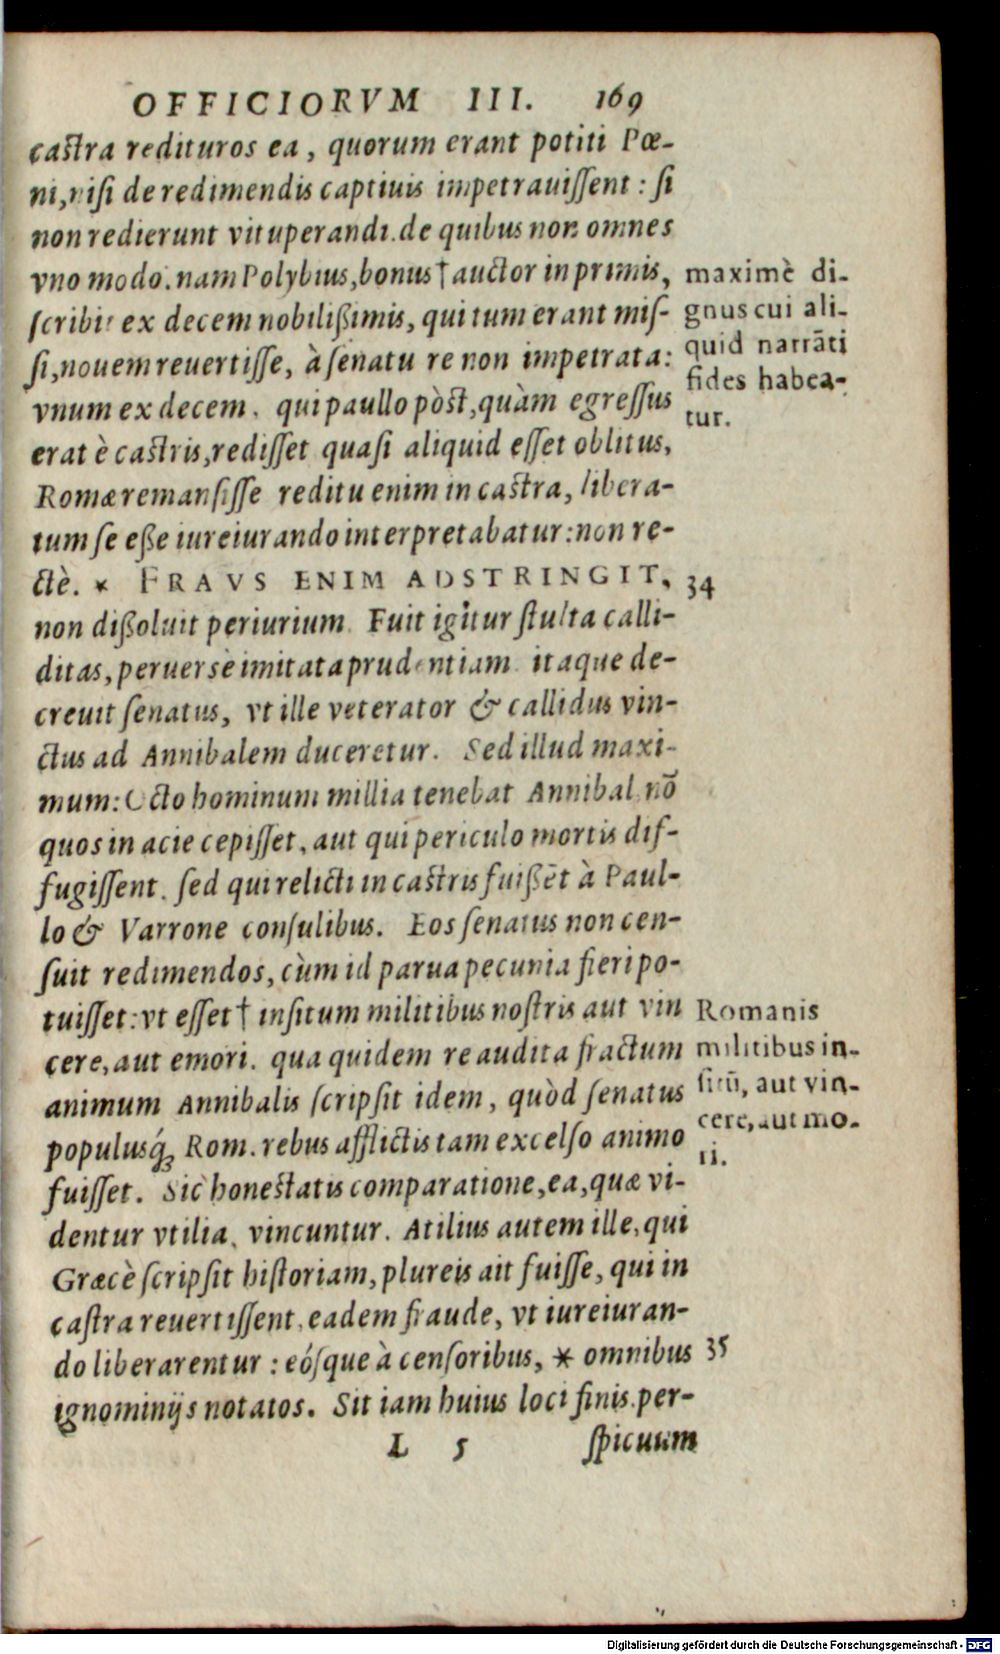 OFFICIORVM III. 169
castra redituros ea, quorum erant potiti Pœ-
ni, nisi de redimendis captiuis impetrauissent: si
non redierunt vituperandi. de quibus non omnes
vno modo. nam Polybius, bonus † auctor in primis,
scribit ex decem nobilißimis, qui tum erant mis-
si, nouem reuertisse, à senatu re non impetrata:
vnum ex decem, qui paullo pòst, quàm egressus
erat è castris, redisset quasi aliquid esset oblitus,
Romæ remansisse reditu enim in castra, libera-
tum se eße iureiurando interpretabatur: non re-
ctè. * FRAVS ENIM ADSTRINGIT,
non dißoluit periurium. Fuit igitur stulta calli-
ditas, peruersè imitata prudentiam. itaque de-
creuit senatus, vt ille veterator & callidus vin-
ctus ad Annibalem duceretur. Sed illud maxi-
mum: Octo hominum millia tenebat Annibal, nō
quos in acie cepisset, aut qui periculo mortis dif-
fugissent, sed qui relicti in castris fuißēt à Paul-
lo & Varrone consulibus. Eos senatus non cen-
suit redimendos, cùm id parua pecunia fieri po-
tuisset: vt esset † insitum militibus nostris aut vin
cere, aut emori. qua quidem re audita fractum
animum Annibalis scripsit idem, quòd senatus
populusq́; Rom. rebus afflictis tam excelso animo
fuisset. Sic honestatis comparatione, ea, quæ vi-
dentur vtilia, vincuntur. Atilius autem ille, qui
Græcè scripsit historiam, plureis ait fuisse, qui in
castra reuertissent, eadem fraude, vt iureiuran-
do liberarentur: eósque à censoribus, * omnibus
ignominijs notatos. Sit iam huius loci finis. per-
L 5 spicuum
maximè di-
gnus cui ali-
quid narrāti
fides habea-
tur.
34
Romanis
militibus in-
sitū, aut vin-
cere, aut mo-
ri.
35
Digitalisierung gefördert durch die Deutsche Forschungsgemeinschaft - DFG